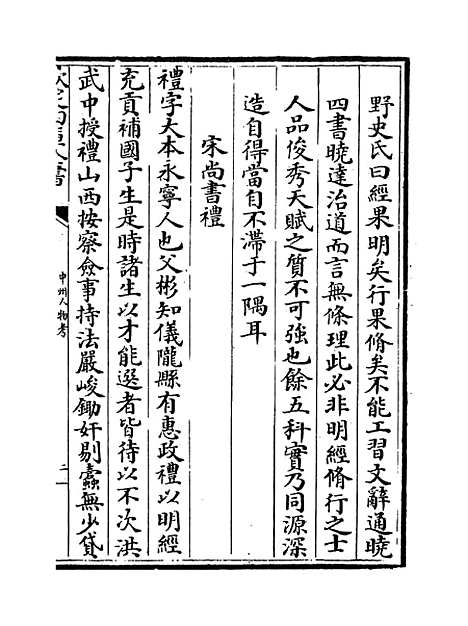 野史氏曰經果明矣行果脩矣不能工習文辭通曉
四書曉達治道而言無條理此必非明經脩行之士
人品俊秀天賦之質不可強也餘五科實乃同源深
造自得當自不滯于一隅耳
宋尚書禮
禮字大本永寧人也父彬知儀隴縣有惠政禮以明經
充貢補國子生是時諸生以才能選者皆待以不次洪
武中授禮山西按察僉事持法嚴峻鋤奸剔蠹無少貸
中州人物考
二